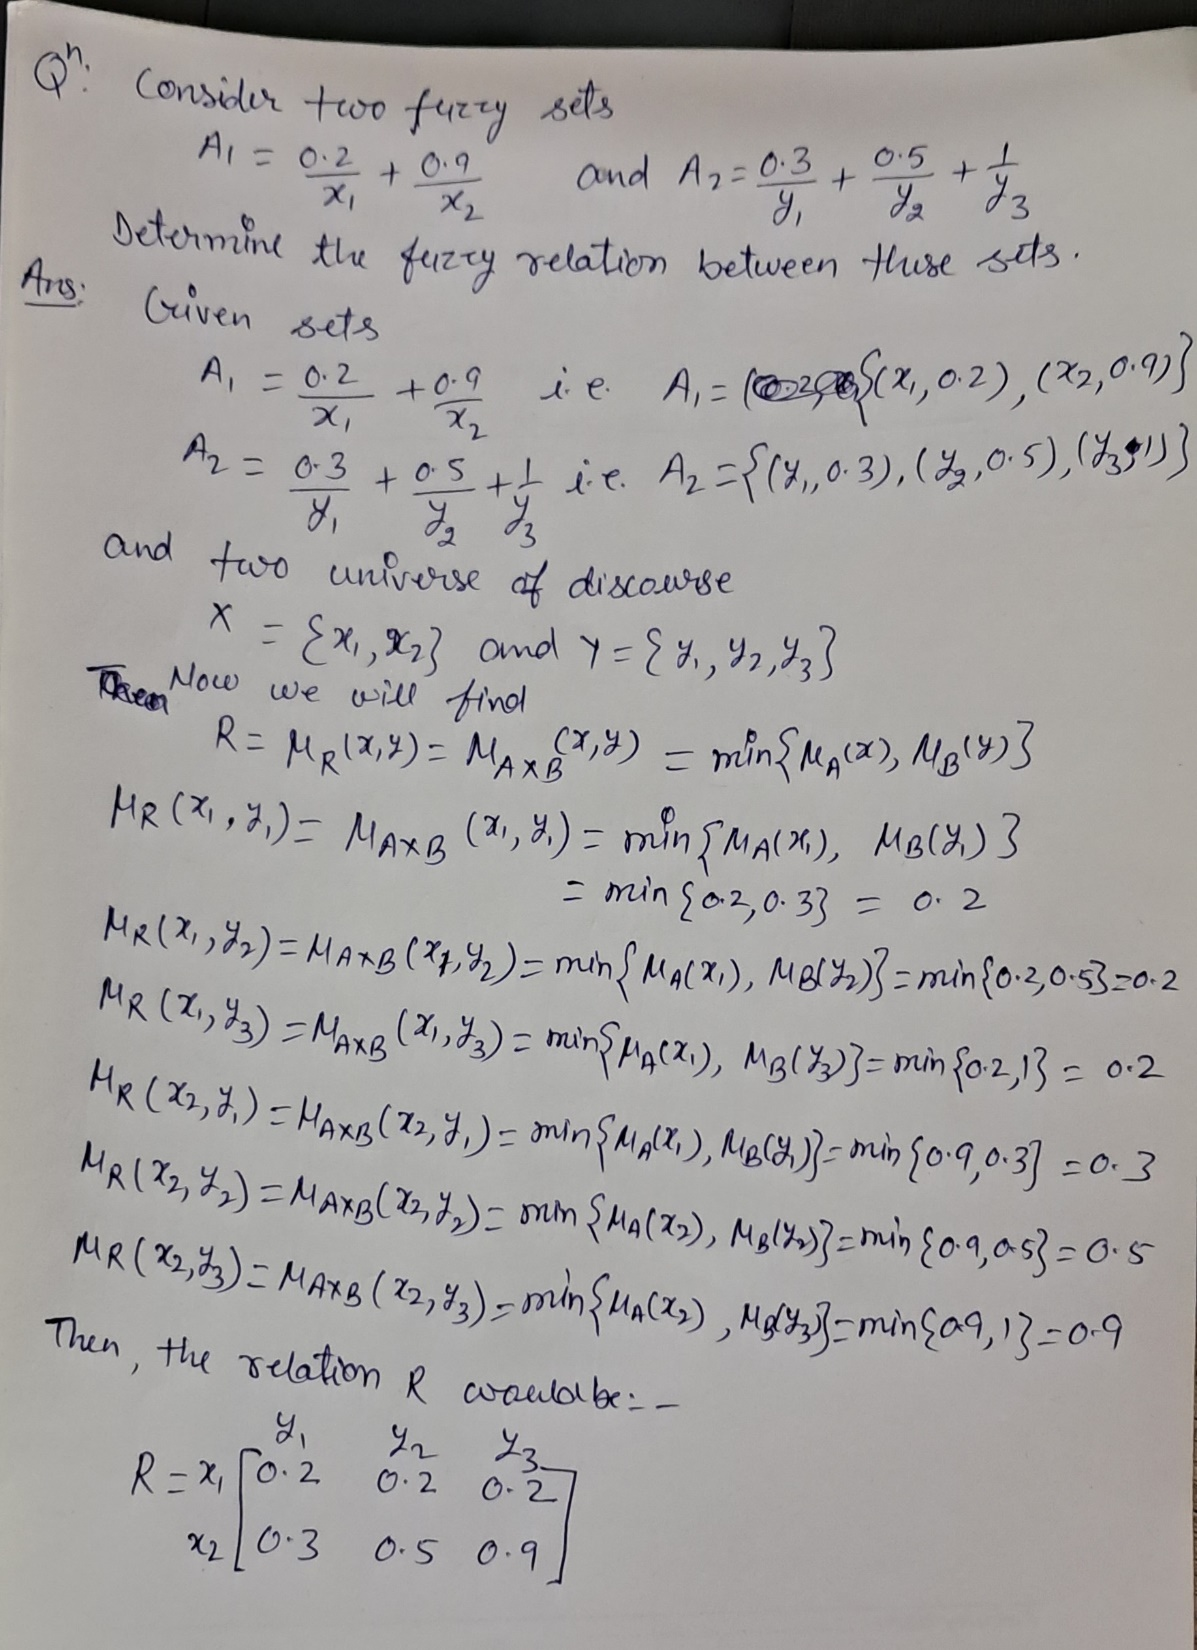 Qⁿ. Consider two fuzzy sets
A₁ = 0.2/x₁ + 0.9/x₂ and A₂ = 0.3/y₁ + 0.5/y₂ + 1/y₃
Determine the fuzzy relation between these sets.
Ans: Given sets
A₁ = 0.2/x₁ + 0.9/x₂ i.e. A₁ = {(x₁, 0.2), (x₂, 0.9)}
A₂ = 0.3/y₁ + 0.5/y₂ + 1/y₃ i.e. A₂ = {(y₁, 0.3), (y₂, 0.5), (y₃, 1)}
and two universe of discourse
X = {x₁, x₂} and Y = {y₁, y₂, y₃}
Now we will find
R = μ_R(x,y) = μ_A×B(x,y) = min{μ_A(x), μ_B(y)}
μ_R(x₁, y₁) = μ_A×B(x₁, y₁) = min{μ_A(x₁), μ_B(y₁)}
= min{0.2, 0.3} = 0.2
μ_R(x₁, y₂) = μ_A×B(x₁, y₂) = min{μ_A(x₁), μ_B(y₂)} = min{0.2, 0.5} = 0.2
μ_R(x₁, y₃) = μ_A×B(x₁, y₃) = min{μ_A(x₁), μ_B(y₃)} = min{0.2, 1} = 0.2
μ_R(x₂, y₁) = μ_A×B(x₂, y₁) = min{μ_A(x₁), μ_B(y₁)} = min{0.9, 0.3} = 0.3
μ_R(x₂, y₂) = μ_A×B(x₂, y₂) = min{μ_A(x₂), μ_B(y₂)} = min{0.9, 0.5} = 0.5
μ_R(x₂, y₃) = μ_A×B(x₂, y₃) = min{μ_A(x₂), μ_B(y₃)} = min{0.9, 1} = 0.9
Then, the relation R would be:-
y₁ y₂ y₃
R = x₁ [0.2 0.2 0.2]
x₂ [0.3 0.5 0.9]